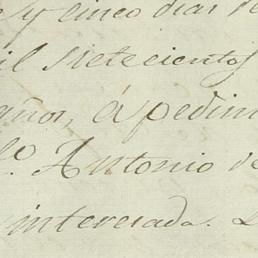 y cinco dias de
il Setecientos
años, á pedim
lo. Antonio de
interesada.